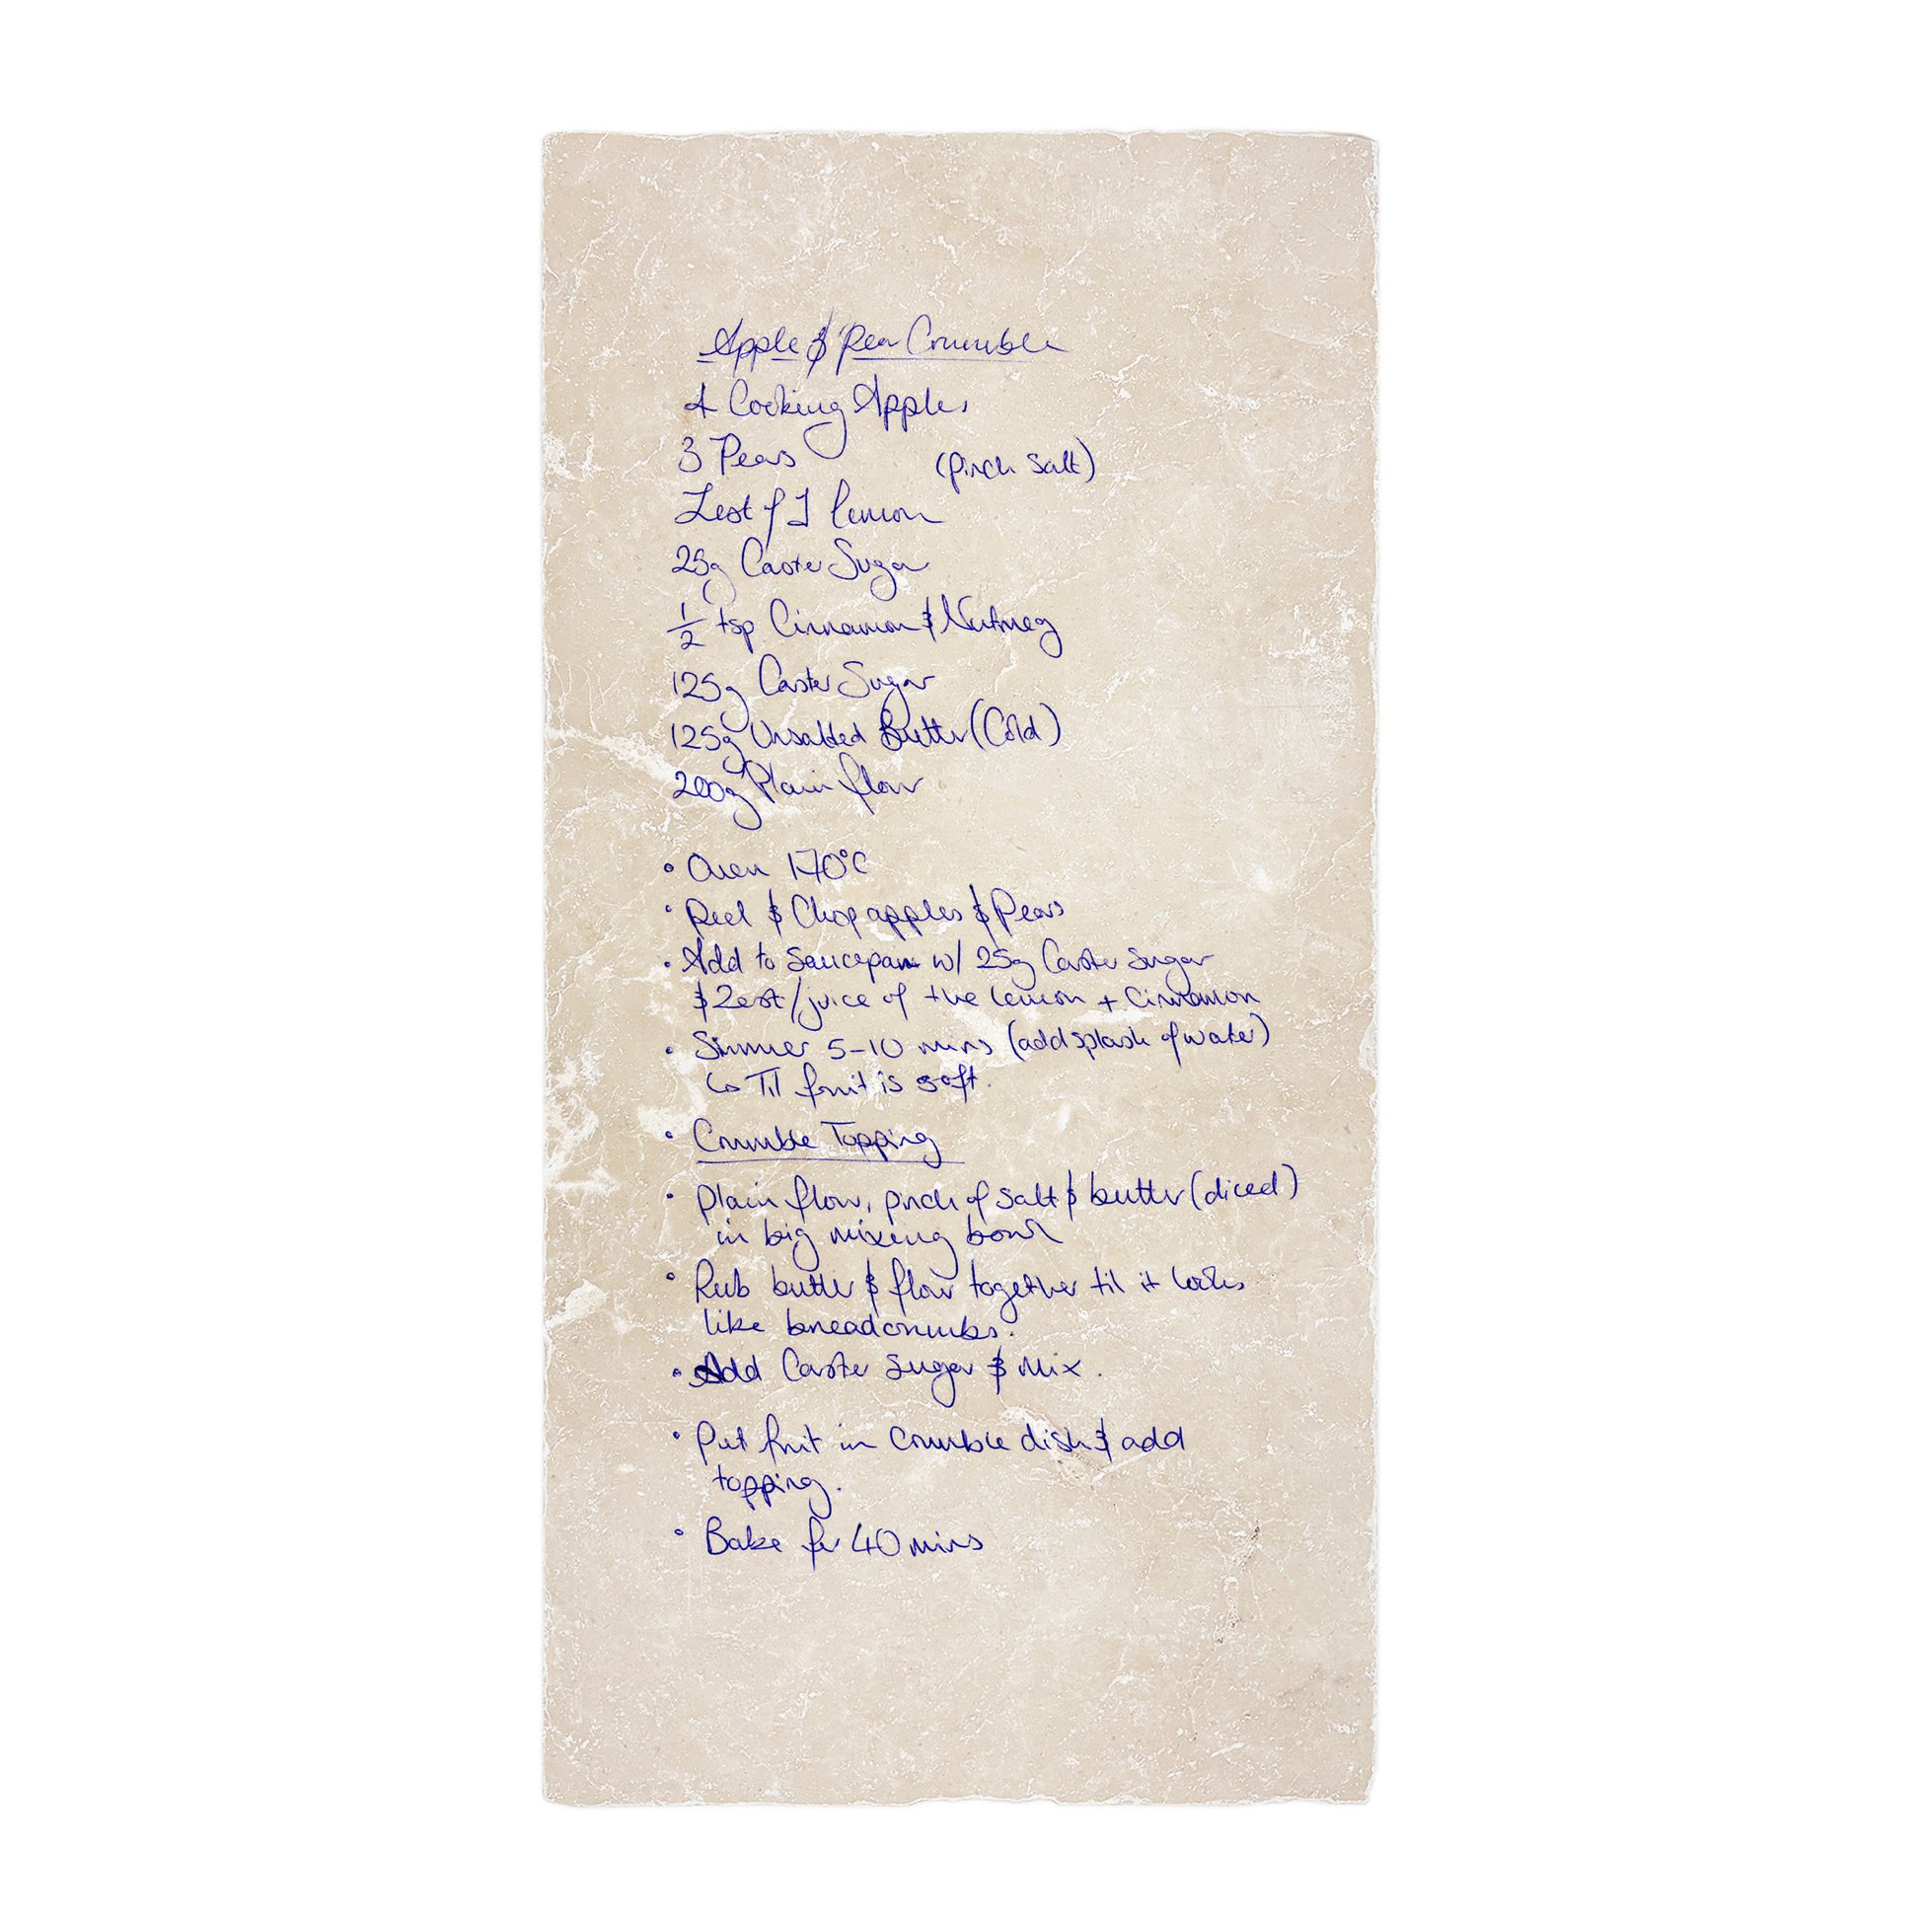 Apple & Pear Crumble
4 Cooking Apples
3 Pears (pinch salt)
Zest of 1 lemon
25g Caster Sugar
1/2 tsp Cinnamon & Nutmeg
125g Caster Sugar
125g Unsalted Butter (Cold)
200g Plain flour
• Oven 170°C
• Peel & Chop apples & Pears
• Add to Saucepan w/ 25g Caster Sugar
& Zest/juice of the lemon + Cinnamon
• Simmer 5-10 mins (add splash of water)
↳ Til fruit is soft.
• Crumble Topping
• Plain flour, pinch of salt & butter (diced)
in big mixing bowl
• Rub butter & flour together til it looks
like breadcrumbs.
• Add Caster Sugar & Mix.
• Put fruit in Crumble dish & add
topping.
• Bake for 40 mins